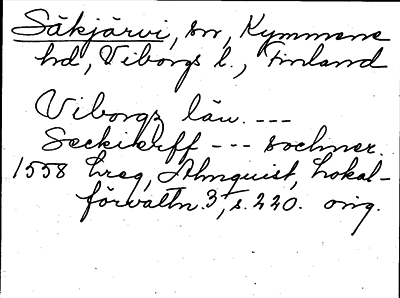 Säkjärvi, sn, Kymmene
hd, Viborgs l., Finland
Viborgs län. ---
Seckikerff --- sochner.
1558 Lreg, Almquist, Lokal-
förvaltn. 3, s. 220. orig.